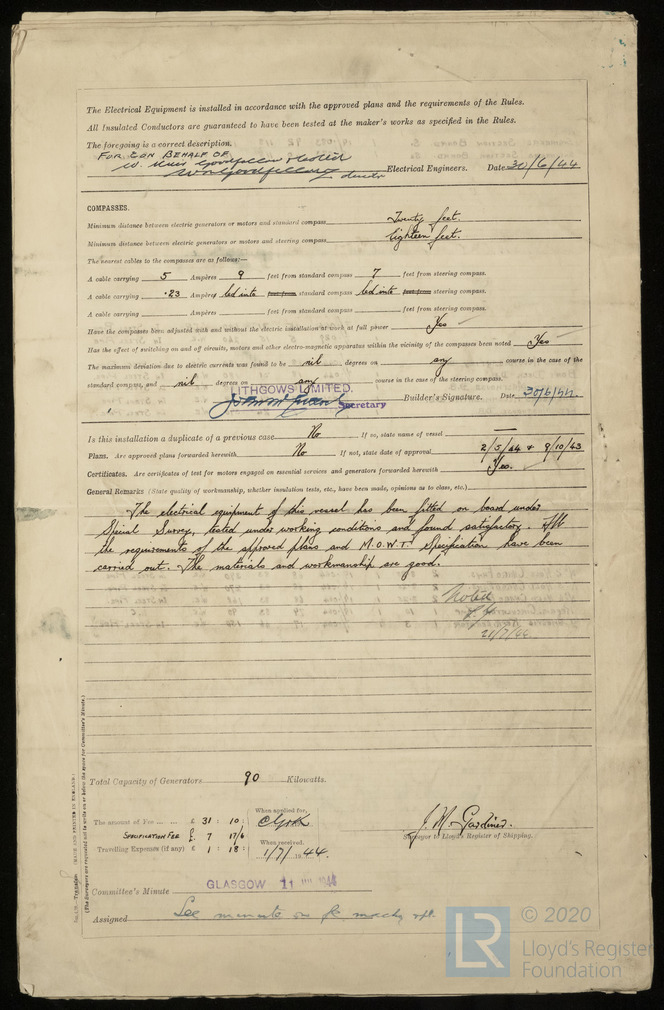 The Electrical Equipment is installed in accordance with the approved plans and the requirements of the Rules.
All Insulated Conductors are guaranteed to have been tested at the maker's works as specified in the Rules.
The foregoing is a correct description,
FOR & ON BEHALF OF
Electrical Engineers. Date 30/6/44
COMPASSES.
Minimum distance between electric generators or motors and standard compass Twenty feet.
Minimum distance between electric generators or motors and steering compass Eighteen feet.
The nearest cables to the compasses are as follows:—
A cable carrying 5 Ampères 9 feet from standard compass 7 feet from steering compass.
A cable carrying .23 Ampères led into feet from standard compass led into feet from steering compass.
A cable carrying Ampères feet from standard compass feet from steering compass.
Have the compasses been adjusted with and without the electric installation at work at full power Yes
Has the effect of switching on and off circuits, motors and other electro-magnetic apparatus within the vicinity of the compasses been noted Yes
The maximum deviation due to electric currents was found to be nil degrees on any course in the case of the
standard compass, and nil degrees on any course in the case of the steering compass.
LITHGOWS LIMITED.
Secretary Builder's Signature. Date 30/6/44.
Is this installation a duplicate of a previous case No If so, state name of vessel —
Plans. Are approved plans forwarded herewith No If not, state date of approval 2/5/44 & 9/10/43
Certificates. Are certificates of test for motors engaged on essential services and generators forwarded herewith Yes.
General Remarks (State quality of workmanship, whether insulation tests, etc., have been made, opinions as to class, etc.)
The electrical equipment of this vessel has been fitted on board under
Special Survey, tested under working conditions and found satisfactory. All
the requirements of the approved plans and M.O.W.T. Specification have been
carried out. The materials and workmanship are good.
Noted
21/7/44
Total Capacity of Generators 90 Kilowatts.
The amount of Fee ... ... £ 31 : 10 : When applied for,
SPECIFICATION FEE £ 7 17/6
Travelling Expenses (if any) £ 1 : 18 : When received,
1/7/1944.
J. M. Gardiner.
Surveyor to Lloyd's Register of Shipping.
Committee's Minute GLASGOW 11 JUL 1944
Assigned See minute on
(The Surveyors are requested not to write on or below the space for Committee's Minute.)
© 2020
LR
Lloyd's Register
Foundation